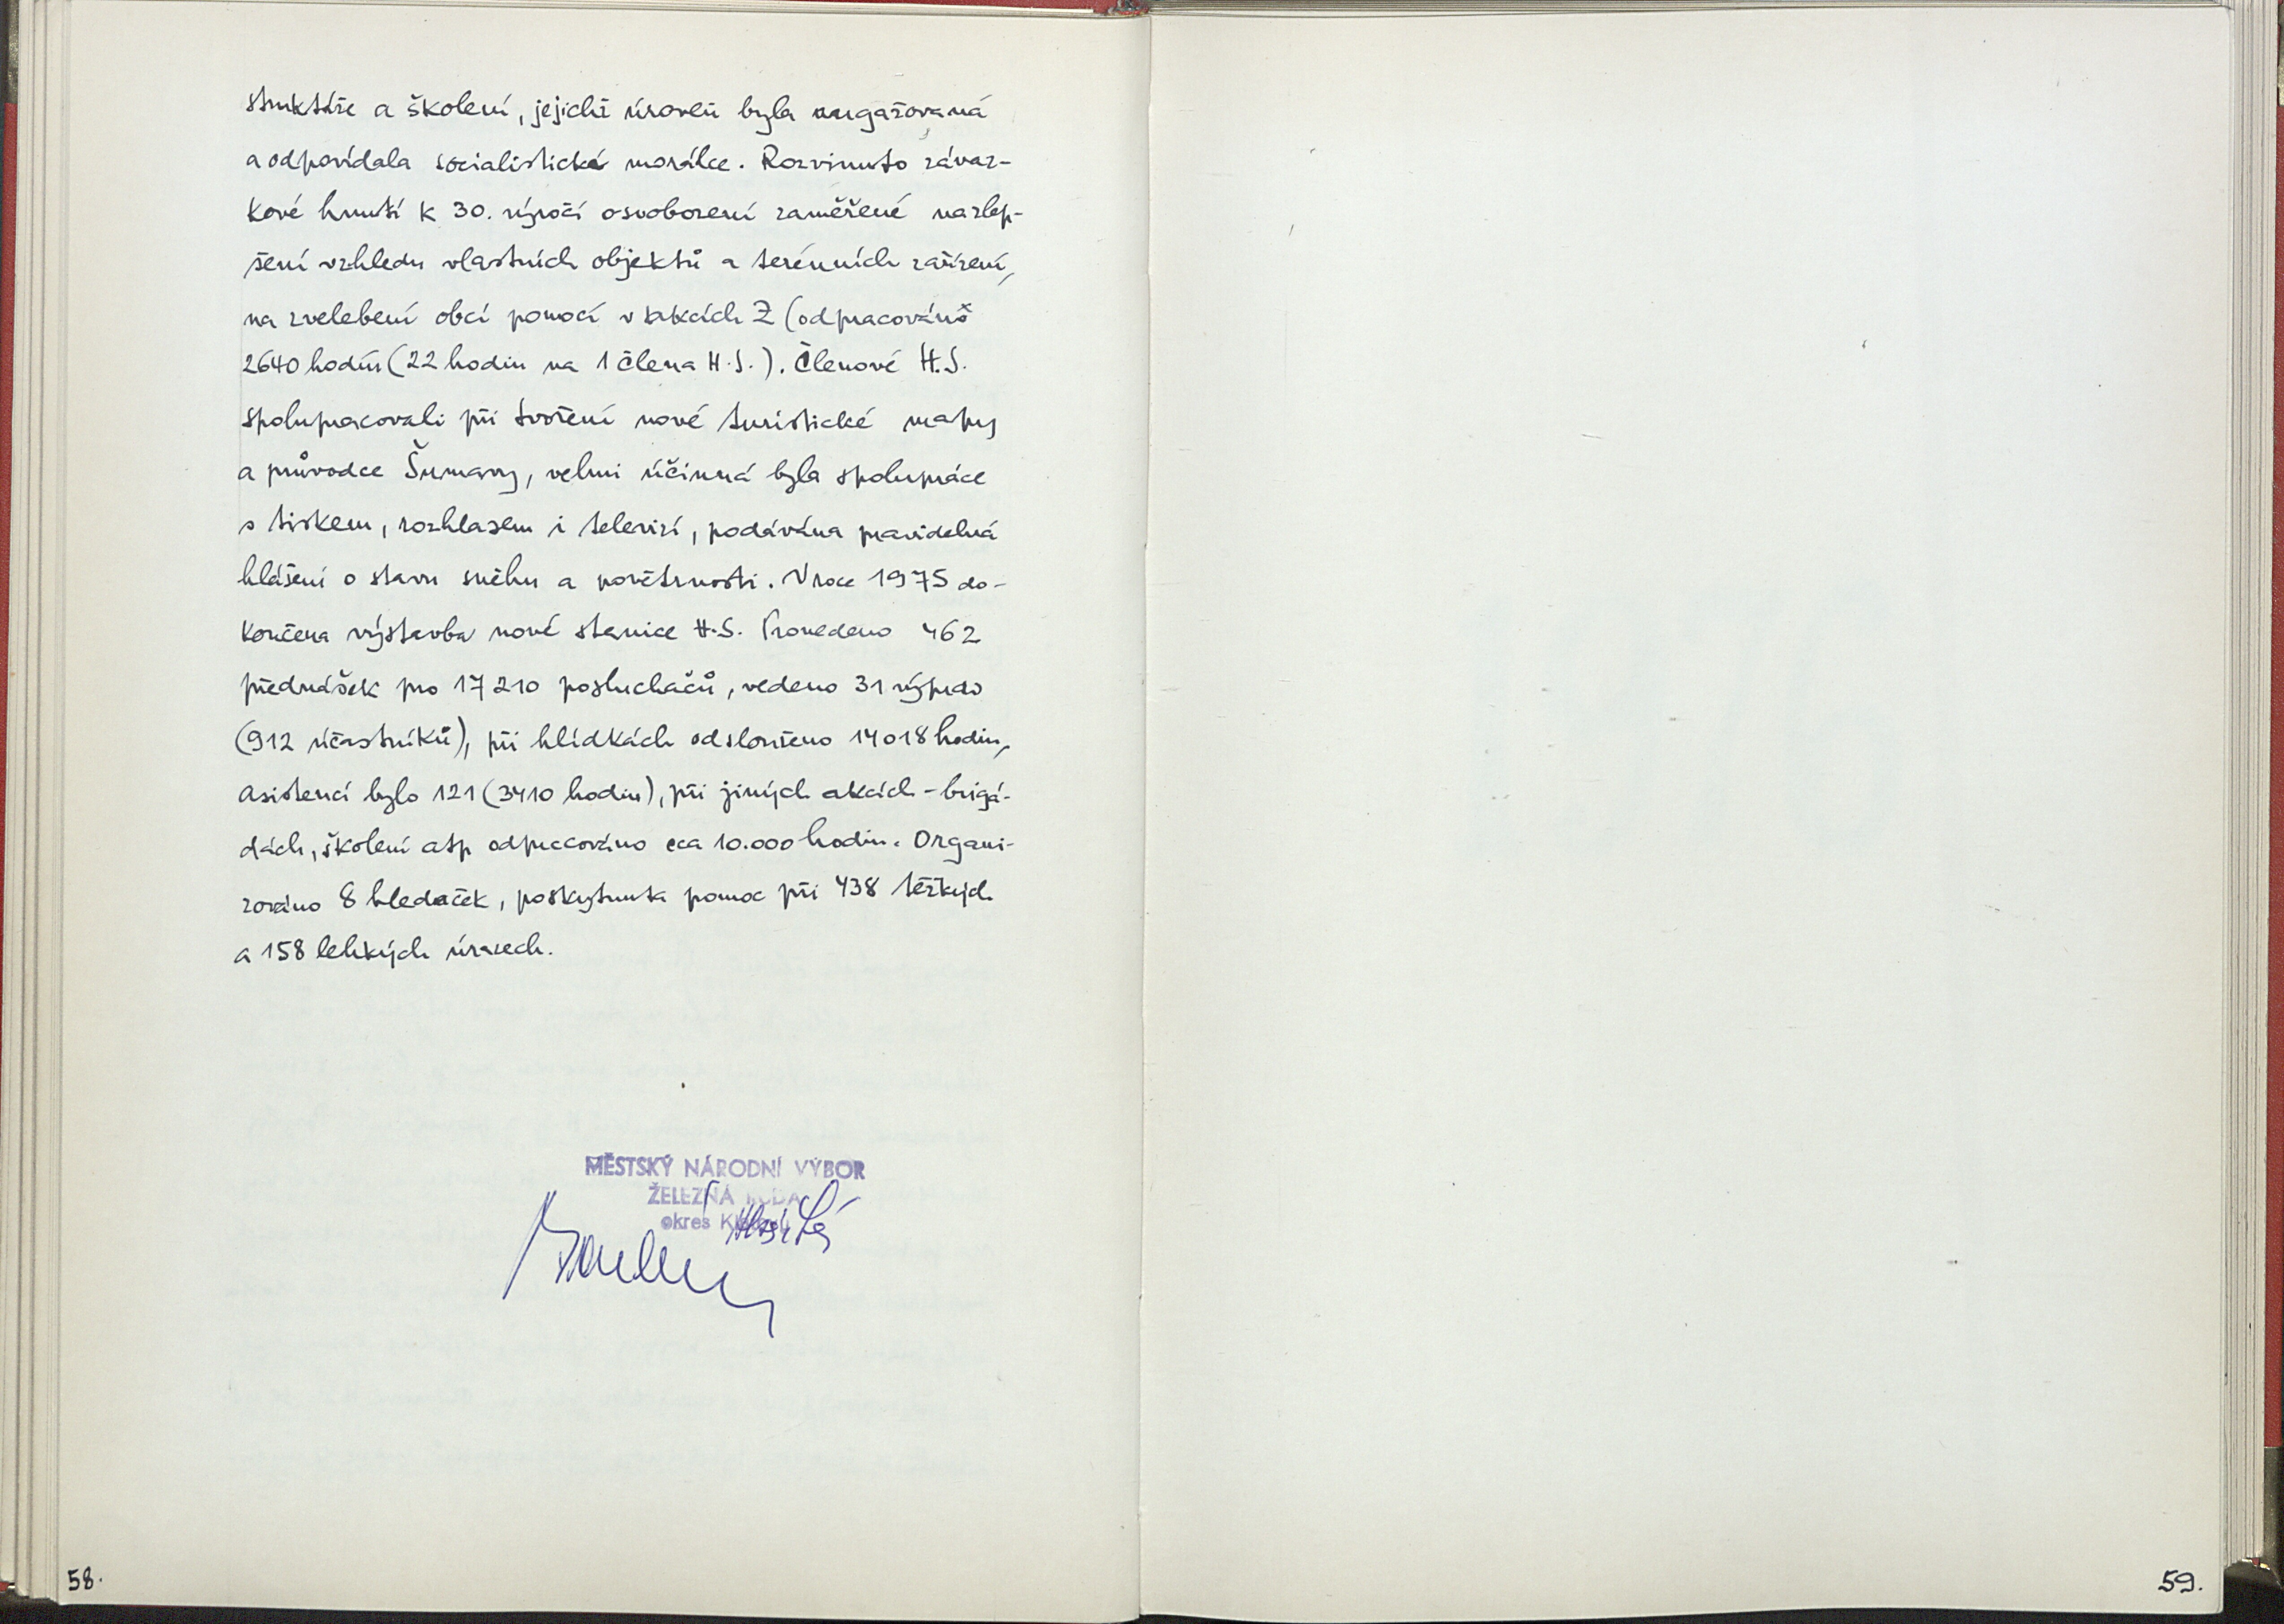 struktáře a školení, jejichž úroveň byla angažovaná
a odpovídala socialistické morálce. Rozvinuto závaz-
kové hnutí k 30. výročí osvobození zaměřené na zlep-
šení vzhledu vlastních objektů a terénních zařízení,
na zvelebení obcí pomocí v akcích Z (odpracováno
2640 hodin (22 hodin na 1 člena H.S.). Členové H.S.
spolupracovali při tvoření nové turistické mapy
a průvodce Šumavy, velmi účinná byla spolupráce
s tiskem, rozhlasem i televizí, podávána pravidelná
hlášení o stavu sněhu a povětrnosti. V roce 1975 do-
končena výstavba nové stanice H.S. Provedeno 462
přednášek pro 17 210 posluchačů, vedeno 31 výprav
(912 účastníků), při hlídkách odslouženo 14018 hodin,
asistencí bylo 121 (3410 hodin), při jiných akcích - brigá-
dách, školení atp odpracováno cca 10.000 hodin. Organi-
zováno 8 hledaček, poskytnuta pomoc při 438 těžkých
a 158 lehkých úrazech.
MĚSTSKÝ NÁRODNÍ VÝBOR
ŽELEZNÁ RUDA
okres
58.
59.